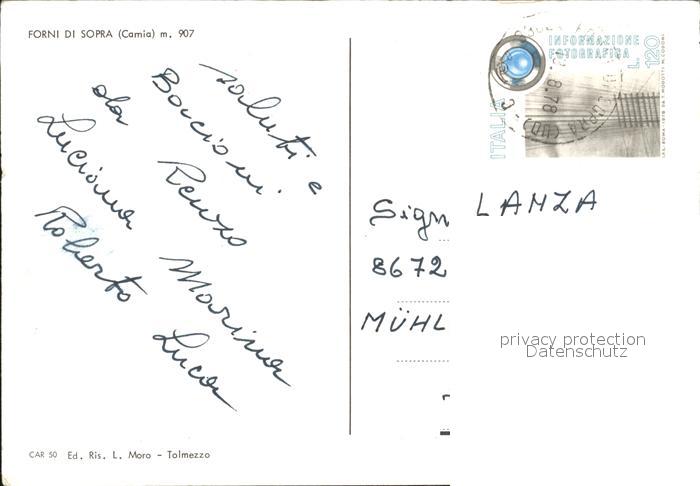 FORNI DI SOPRA (Carnia) m. 907
Saluti e
Bacioni
da Renzo Marina
Luciana Luca
Roberto
INFORMAZIONE
FOTOGRAFICA
L. 120
ITALIA
8.78
(UD)
Sign LANZA
8672
MÜHL
privacy protection
Datenschutz
CAR 50 Ed. Ris. L. Moro - Tolmezzo